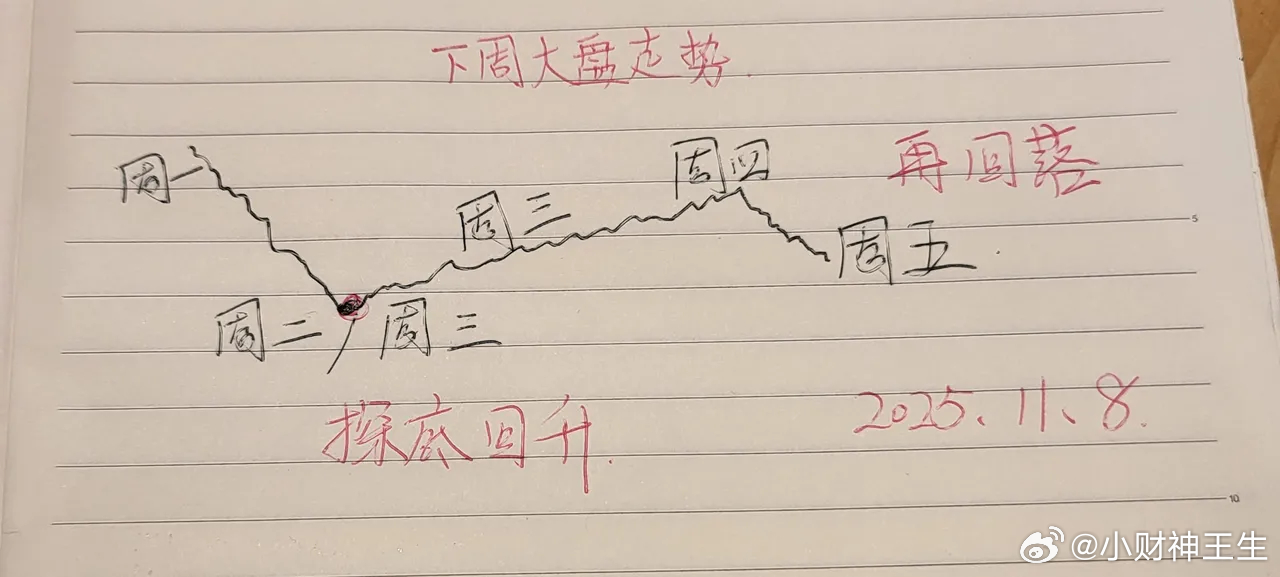 下周大盘走势.
周一
周三
周四
再回落
5
周五.
周二/周三
探底回升.
2025、11、8.
10
@小财神王生